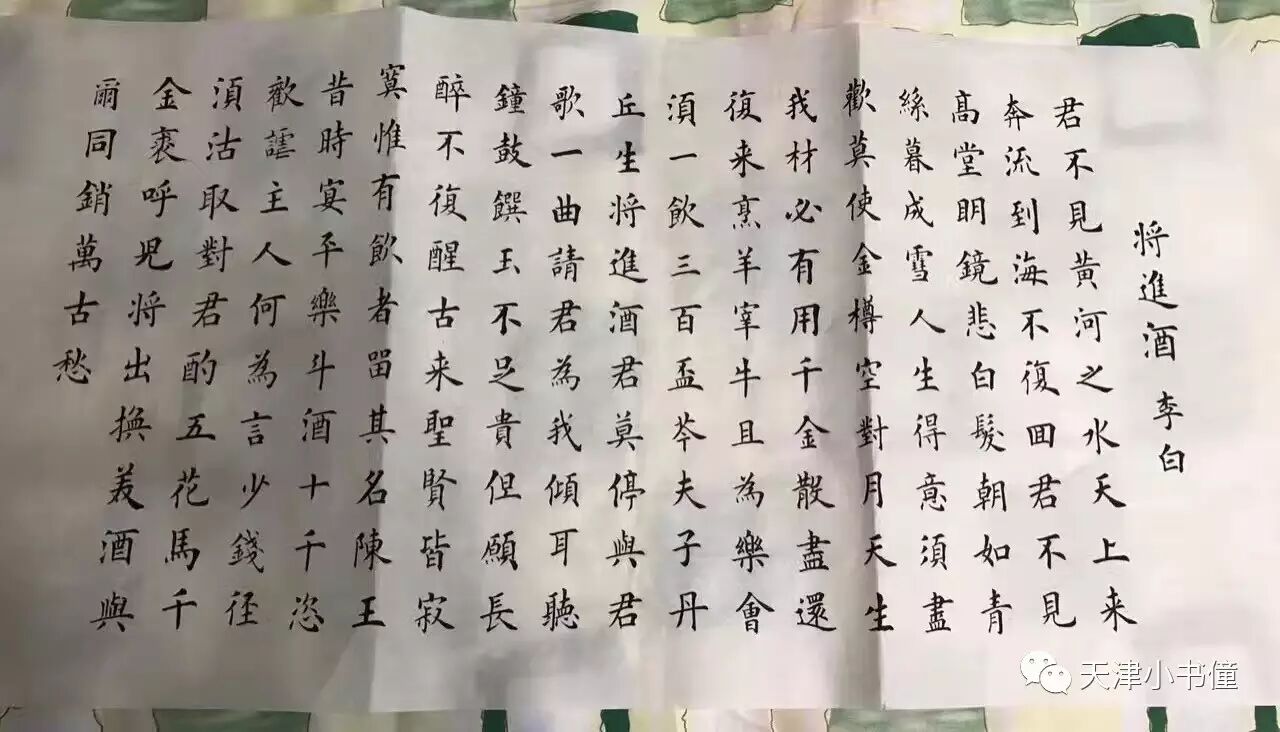 将進酒 李白
君不見黃河之水天上来
奔流到海不復回君不見
高堂明鏡悲白髮朝如青
絲暮成雪人生得意須盡
歡莫使金樽空對月天生
我材必有用千金散盡還
復来烹羊宰牛且為樂會
須一飲三百盃岑夫子丹
丘生将進酒君莫停與君
歌一曲請君為我傾耳聽
鐘鼓饌玉不足貴但願長
醉不復醒古来聖賢皆寂
寞惟有飲者留其名陳王
昔時宴平樂斗酒十千恣
歡謔主人何為言少錢径
須沽取對君酌五花馬千
金裘呼児将出換美酒與
爾同銷萬古愁
天津小书僮